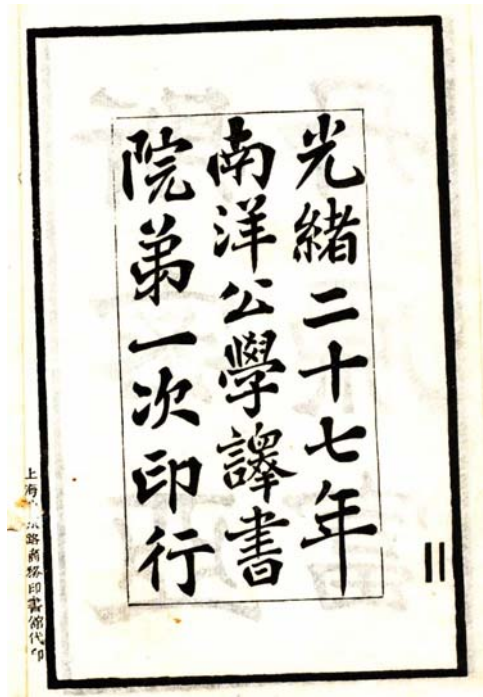 光緒二十七年
南洋公學譯書
院弟一次印行
上海
路商務印書館代印